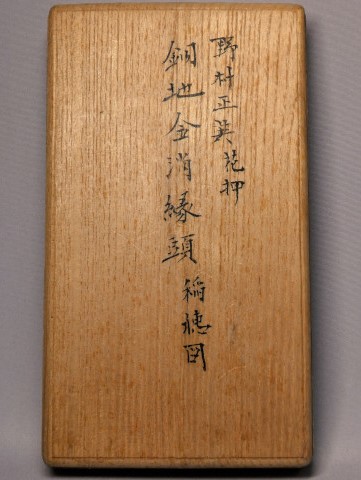 野村正英花押
銅地金消縁頭 稲穂図